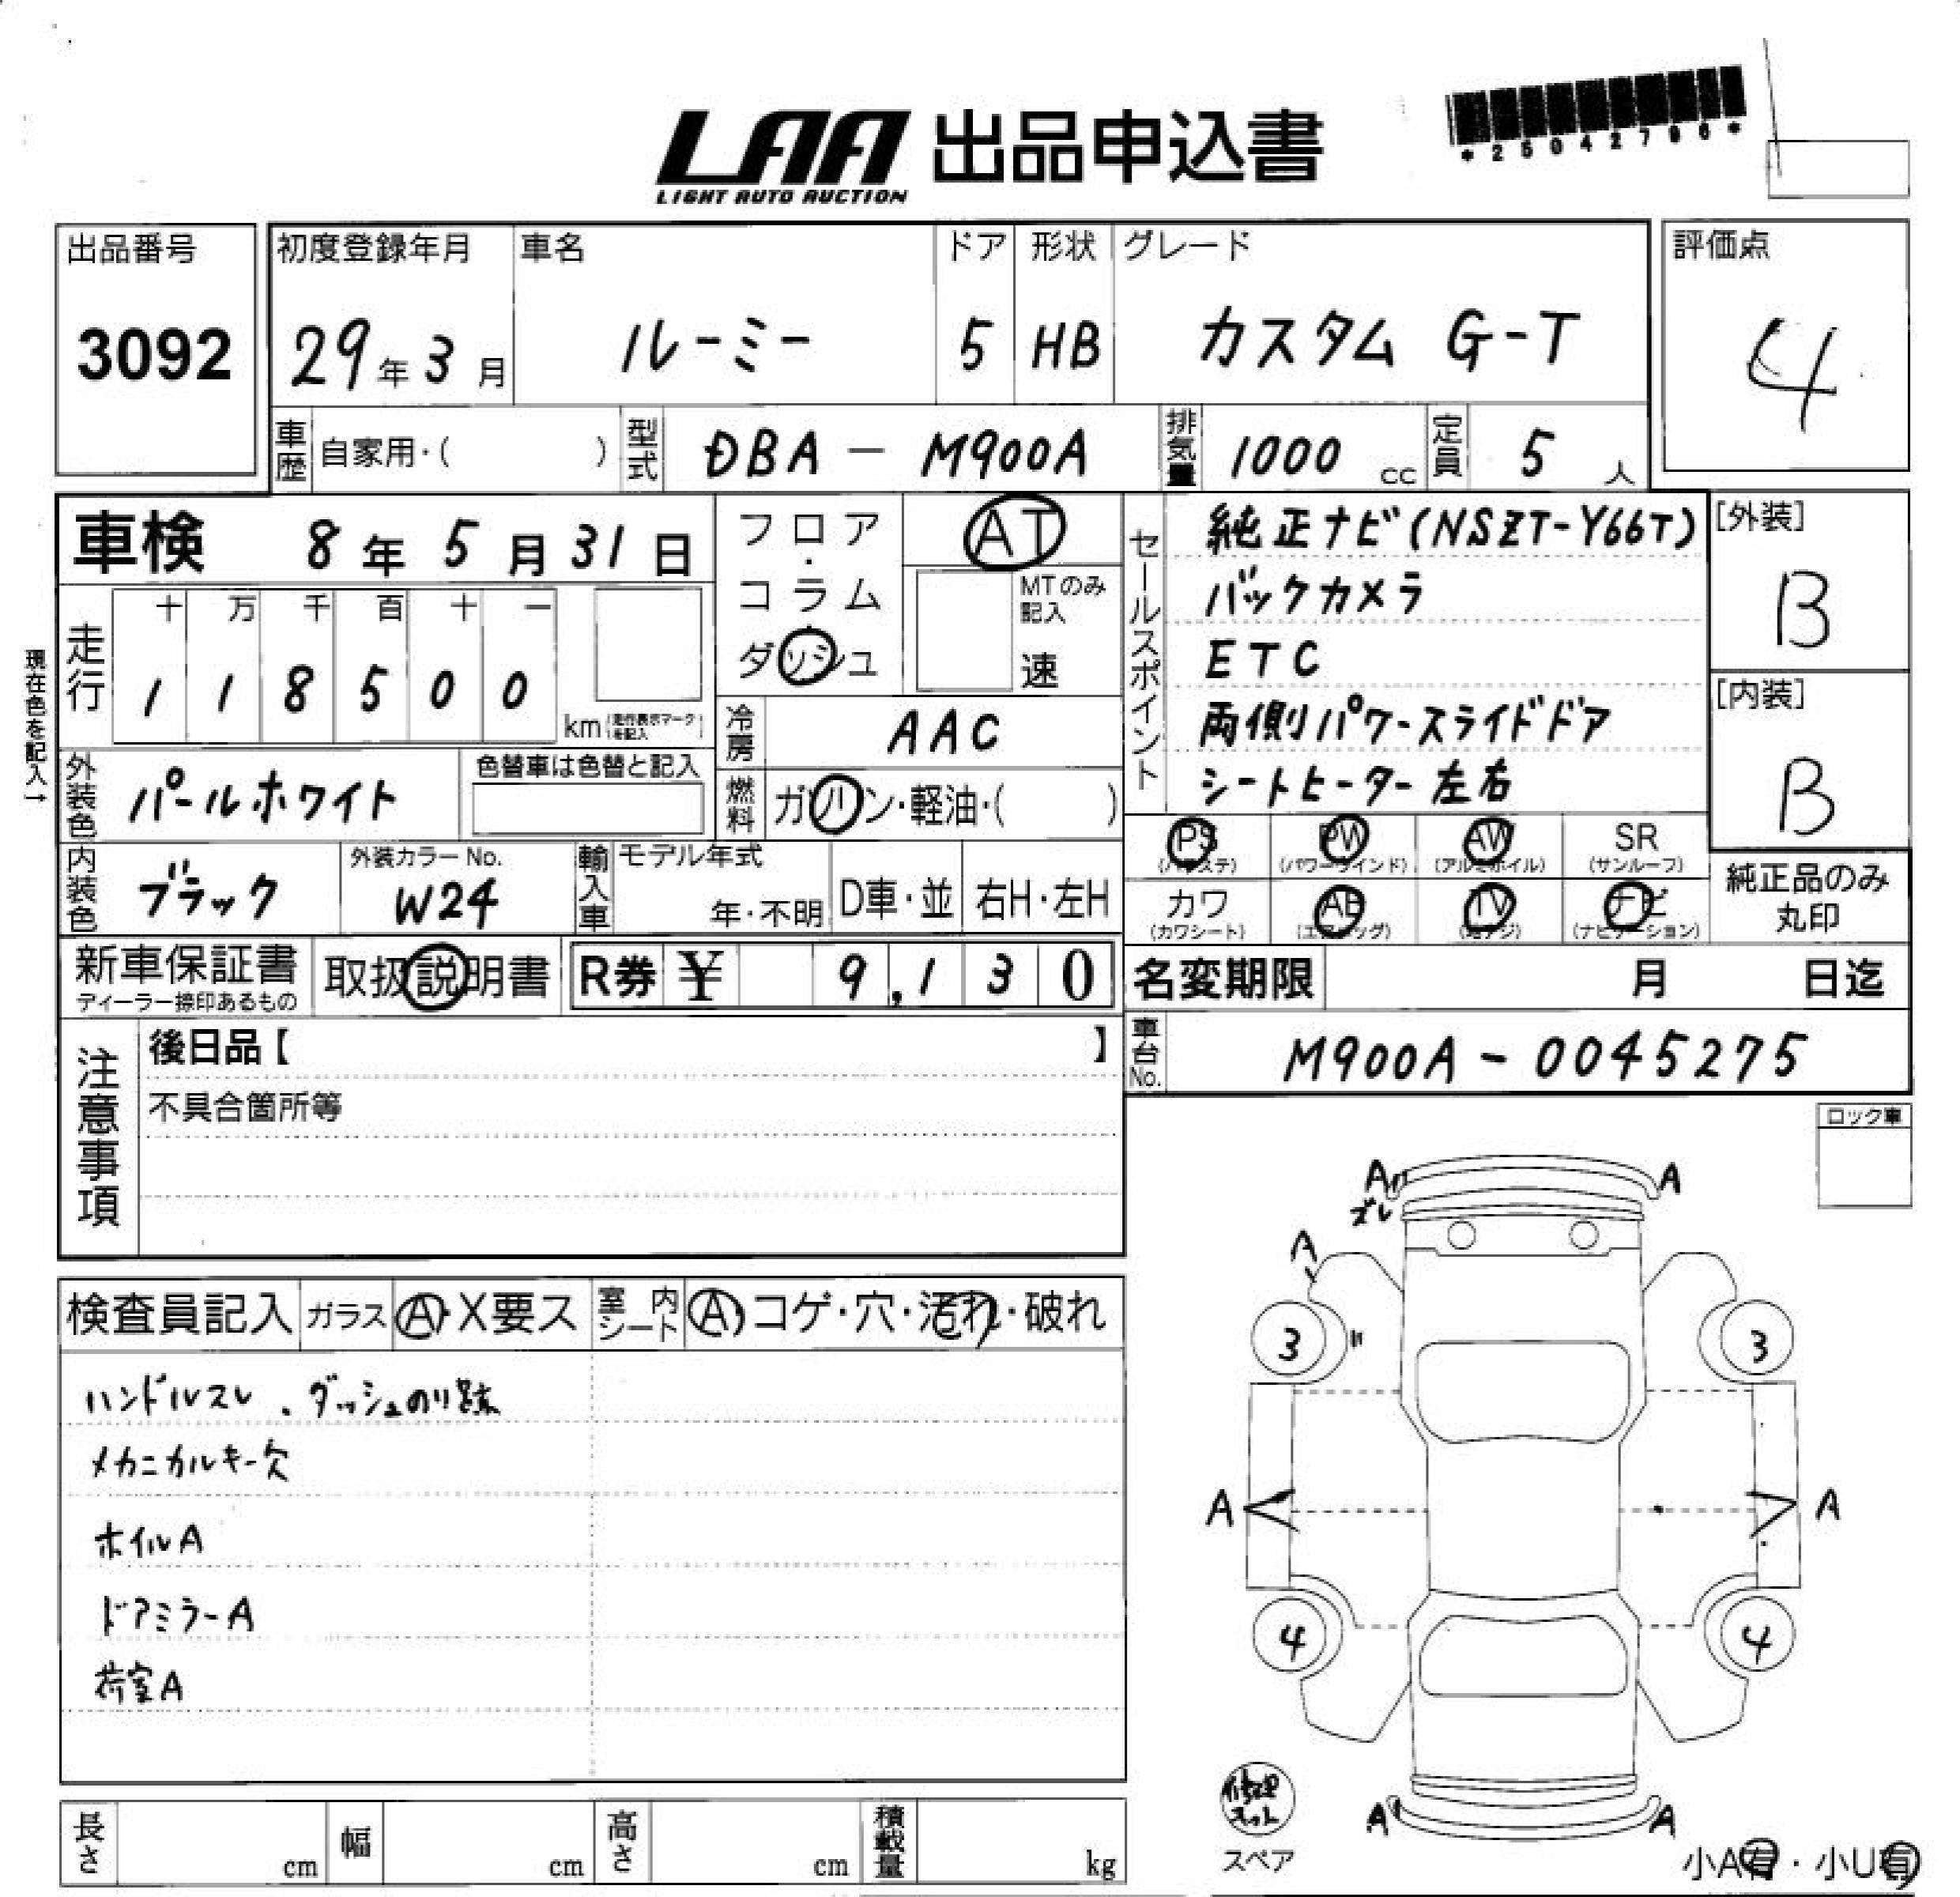 LAA 出品申込書
LIGHT AUTO AUCTION
*25042790*
出品番号
3092
初度登録年月
29年3月
車名
ルーミー
ドア
5
形状
HB
グレード
カスタム G-T
評価点
4
車歴 自家用・( )
型式 DBA-M900A
排気量 1000 cc
定員 5 人
車検 8年5月31日
フロア・コラム・ダッシュ
AT
MTのみ記入
速
現在色を記入→
走行
十 万 千 百 十 一
1 1 8 5 0 0 km (走行表示マークを記入)
冷房 AAC
外装色 パールホワイト
色替車は色替と記入
燃料 ガソリン・軽油・( )
内装色 ブラック
外装カラーNo.
W24
輸入車 モデル年式
年・不明
D車・並
右H・左H
セールスポイント
純正ナビ(NSZT-Y66T)
バックカメラ
ETC
両側パワースライドドア
シートヒーター左右
[外装]
B
[内装]
B
PS (パワステ)
PW (パワーウインド)
AW (アルミホイル)
SR (サンルーフ)
カワ (カワシート)
AB (エアバッグ)
TV (地デジ)
ナビ (ナビゲーション)
純正品のみ丸印
新車保証書
ディーラー捺印あるもの
取扱説明書
R券 ¥ 9,130
名変期限 月 日迄
車台No. M900A-0045275
注意事項
後日品【 】
不具合箇所等
ロック車
検査員記入
ガラス A・X要ス
室内シート A・コゲ・穴・汚れ・破れ
ハンドルスレ、ダッシュのり跡
メカニカルキー欠
ホイルA
ドアミラーA
荷室A
A A
ズレ
A
3 3
A A
4 4
A A
修理キット
スペア
小A有・小U有
長さ cm
幅 cm
高さ cm
積載量 kg